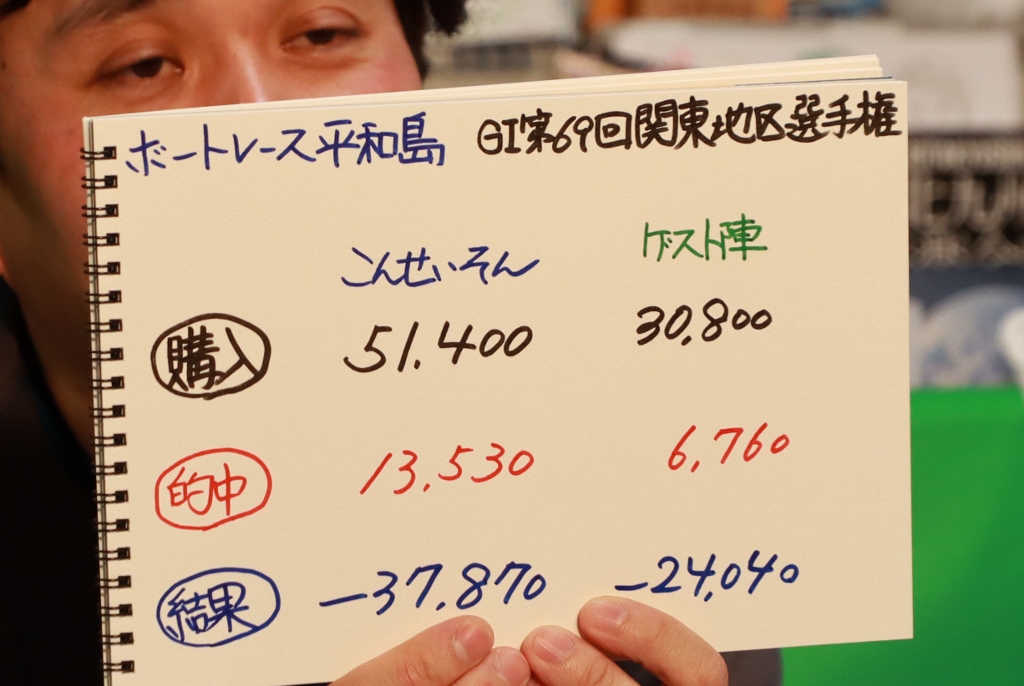 ボートレース平和島 GI第69回関東地区選手権
こんせいそん ゲスト陣
購入 51.400 30,800
的中 13,530 6,760
結果 -37,870 -24,040